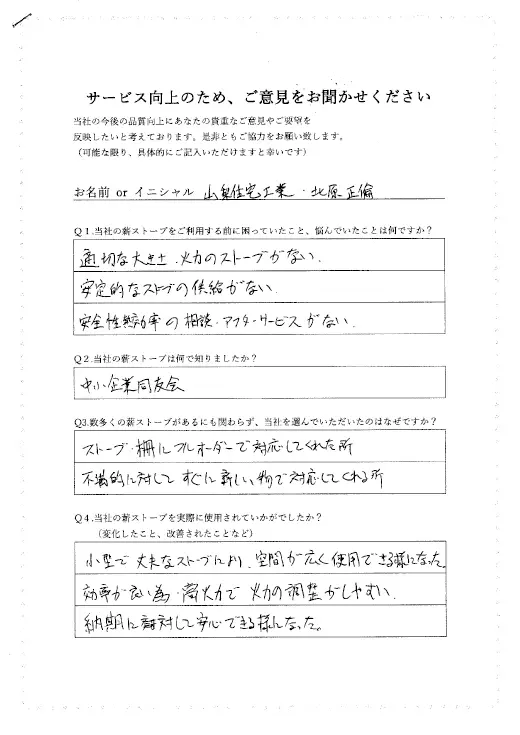 サービス向上のため、ご意見をお聞かせください
当社の今後の品質向上にあなたの貴重なご意見やご要望を
反映したいと考えております。是非ともご協力をお願い致します。
（可能な限り、具体的にご記入いただけますと幸いです）
お名前 or イニシャル 住宅工業・北原 正倫
Q１.当社の薪ストーブをご利用する前に困っていたこと、悩んでいたことは何ですか？
適切な大きさ、火力のストーブがない、
安定的なストーブの供給がない、
安全性 効率の相談・アフターサービスがない、
Q２.当社の薪ストーブは何で知りましたか？
中小企業同友会
Q3.数多くの薪ストーブがあるにも関わらず、当社を選んでいただいたのはなぜですか？
ストーブ・棚にフルオーダーで対応してくれた所
に対して すぐに新しい物で対応してくれる所
Q４.当社の薪ストーブを実際に使用されていかがでしたか？
（変化したこと、改善されたことなど）
小型で丈夫なストーブにより、空間が広く使用できる様になった
効率が良い為、高火力で火力の調整がしやすい、
納期に対して安心できる様になった。